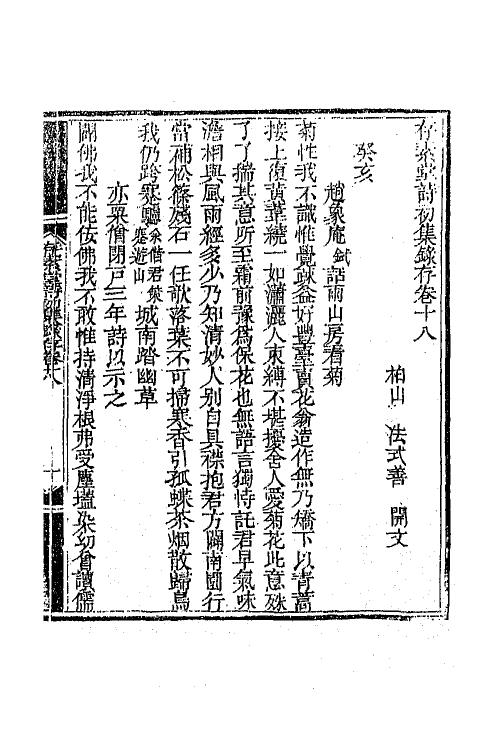 存素堂詩初集錄存卷十八
柏山 法式善 開文
癸亥
趙象庵 鉽 話雨山房看菊
菊性我不識惟覺疎益好豐臺賣花翁造作無乃矯下以青蒿
接上復黃華繞一如瀟灑人束縛不堪擾舍人愛菊花此意殊
了了揣其意所至霜前豫為保花也無語言獨恃託君早氣味
澹相與風雨經多少乃知清妙人別自具襟抱君方闢南園行
當補松篠殘石一任欹落葉不可掃寒香引孤蝶茶烟散歸鳥
我仍跨蹇驢 余借君衆蹇遊山 城南踏幽草
亦粟僧閉戸三年詩以示之
闢佛我不能佞佛我不敢惟持清淨根弗受塵壒染幼曾讀儒
存素堂詩初集錄存卷十八
一